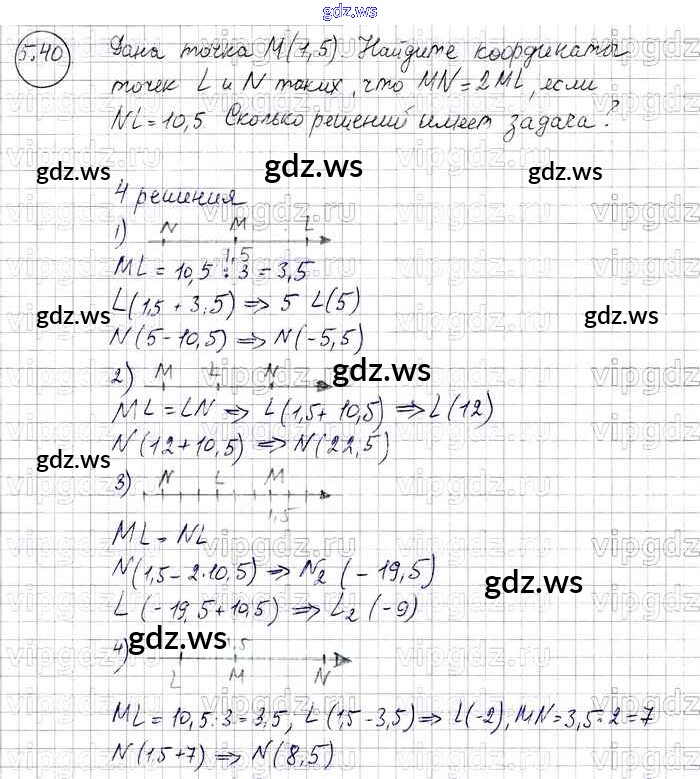 gdz.ws
5.40 Дана точка M(1,5). Найдите координаты
точек L и N таких, что MN=2ML, если
NL=10,5. Сколько решений имеет задача?
gdz.ws
gdz.ws gdz.ws
4 решения
1) N M L
1,5
ML = 10,5 : 3 = 3,5
L(1,5 + 3,5) ⇒ 5 L(5)
gdz.ws gdz.ws
N(5-10,5) ⇒ N(-5,5)
2) M L N
gdz.ws
ML = LN ⇒ L(1,5+10,5) ⇒ L(12)
N(12+10,5) ⇒ N(22,5)
gdz.ws
3) N L M
1,5
ML = NL
N(1,5-2·10,5) ⇒ N₂(-19,5)
gdz.ws
L(-19,5+10,5) ⇒ L₂(-9)
gdz.ws
4) 1,5
L M N
ML = 10,5:3=3,5, L(1,5-3,5) ⇒ L(-2), MN=3,5·2=7
N(1,5+7) ⇒ N(8,5)
gdz.ws